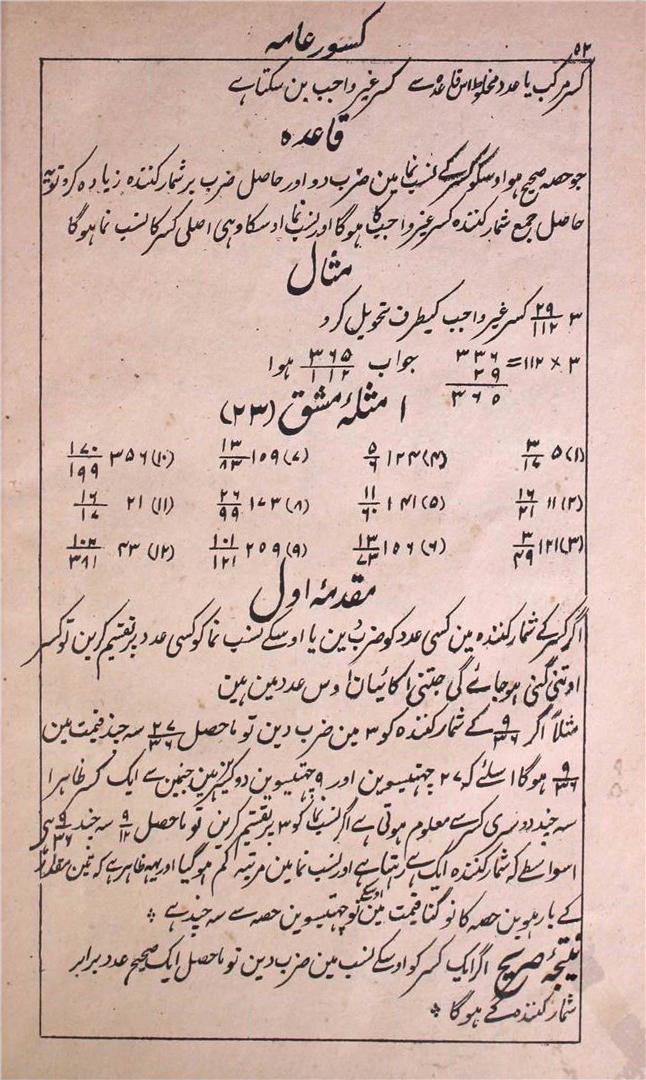 ۵۲
کسور عامہ
کسر مرکب یا عدد مخلوط اس قاعدہ سے کسر غیر واجب بن سکتا ہے
قاعدہ
جو حصہ صحیح ہو اوسکو کسر کے نسب نما مین ضرب دو اور حاصل ضرب پر شمار کنندہ زیادہ کرو تو یہ
حاصل جمع شمار کنندہ کسر غیر واجب کا ہوگا اور نسب نما اوسکا وہی اصلی کسر کا نسب نما ہوگا
مثال
۳ ۲۹/۱۱۲ کسر غیر واجب کیطرف تحویل کرو
۳ × ۱۱۲ = ۳۳۶ جواب ۳۶۵/۱۱۲ ہوا
۲۹
۳۶۵
امثلۂ مشق (۲۳)
(۱) ۵ ۳/۱۷ (۴) ۱۲۴ ۵/۶ (۷) ۱۵۹ ۱۳/۸۳ (۱۰) ۳۵۶ ۱۷۰/۱۹۹
(۲) ۱۱ ۱۶/۲۱ (۵) ۱۴۱ ۱۱/۶۰ (۸) ۱۷۳ ۲۶/۹۹ (۱۱) ۲۱ ۱۶/۱۷
(۳) ۱۲۱ ۳/۴۹ (۶) ۱۵۶ ۱۳/۷۳ (۹) ۲۵۹ ۱۰۱/۱۲۱ (۱۲) ۴۳ /۳۸۱
مقدمۂ اول
اگر کسر کے شمار کنندہ مین کسی عدد کو ضرب دین یا اوسکے نسب نما کو کسی عدد پر تقسیم کرین تو کسر
اوتنی گنی ہو جائے گی جتنی اکائیان اوس عدد مین ہین
مثلاً اگر ۹/۳۶ کے شمار کنندہ کو ۳ مین ضرب دین تو ماحصل ۲۷/۳۶ سہ چند قیمت مین
۹/۳۶ ہوگا اسلئے کہ ۲۷ چھتیسوین اور ۹ چھتیسوین دو کسرین ہین جنمین سے ایک کسر ظاہرا
سہ چند دوسری کسر سے معلوم ہوتی ہے اگر نسب نما کو ۳ پر تقسیم کرین تو ماحصل ۹/۱۲ سہ چند ۹/۳۶ ہی
اسواسطے کہ شمار کنندہ ایک ہی رہتا ہے اور نسب نما مین مرتبہ کم ہوگیا اور یہہ ظاہر ہے کہ تین
کے بارہوین حصہ کا نو گنا قیمت مین اوسکے نو چھتیسوین حصہ سے سہ چند ہے
نتیجۂ صریح اگر ایک کسر کو اوسکے نسب مین ضرب دین تو ماحصل ایک صحیح عدد برابر
شمار کنندہ کے ہوگا